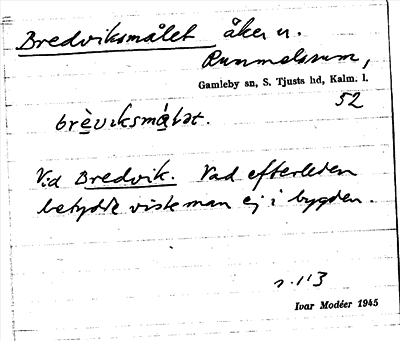 Bredviksmålet åker u.
Rummelsrum,
Gamleby sn, S. Tjusts hd, Kalm. l.
52
brèviksmá̱lət.
Vid Bredvik. Vad efterleden
betydde visste man ej i bygden.
s. 113
Ivar Modéer 1945